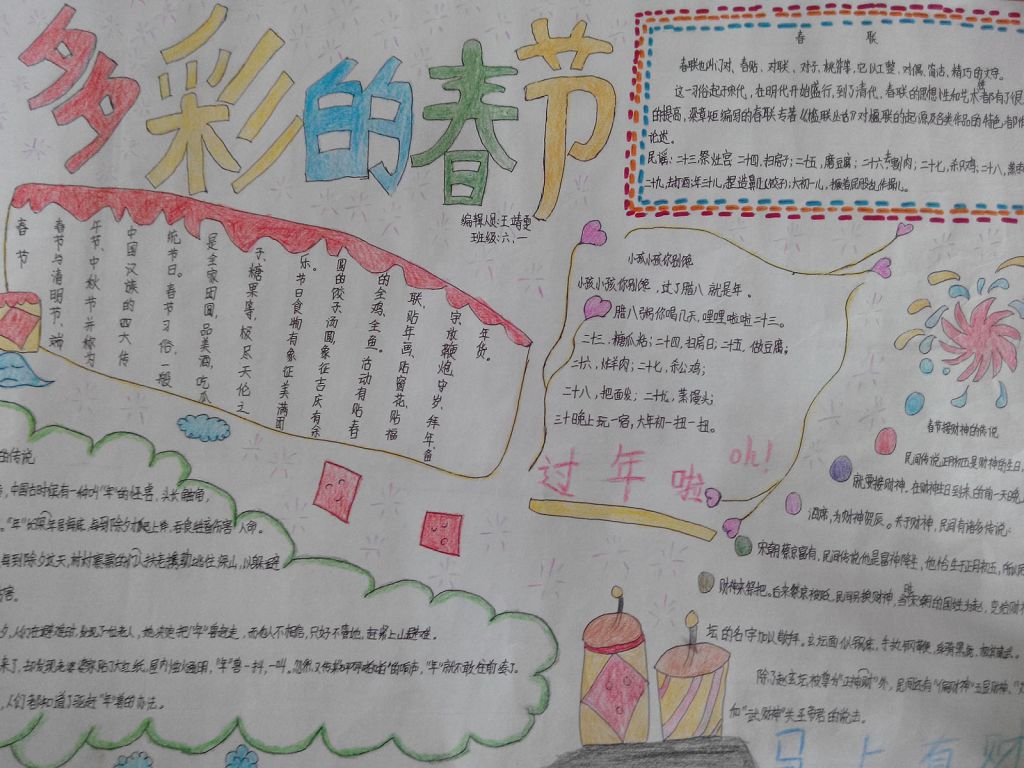 多彩的春节
编辑人员:王靖雯
班级:六、一
春联
春联也叫门对、春贴、对联、对子,桃符等,它以工整、对偶、简洁、精巧的文字。
这一习俗起于宋代,在明代开始盛行,到了清代,春联的思想性和艺术性都有了很
的提高,梁章矩编写的春联专著《槛联丛话》对楹联的起源及各类作品的特色都作
论述。
民谣:二十三祭灶宫 二十四,扫房子;二十五,磨豆腐;二十六去割肉;二十七,杀只鸡;二十八,蒸枣
二十九,去打酒;年三十儿,捏造鼻儿(饺子);大初一儿,撅着屁股乱作揖儿。
春节
春节与清明节、端
午节、中秋节并称为
中国汉族的四大传
统节日。春节习俗,一般
是全家团圆,品美酒,吃瓜
子、糖果等,极尽天伦之
乐。节日食物有象征美满团
圆的饺子、汤圆,象征吉庆有余
的全鸡、全鱼。活动有贴春
联、贴年画、贴窗花、贴福
字、放鞭炮、守岁、拜年、备
年货。
小孩小孩你别馋
小孩小孩你别馋,过了腊八就是年。
腊八粥你喝几天,哩哩啦啦二十三。
二十三,糖瓜粘;二十四,扫房日;二十五,做豆腐;
二十六,炸羊肉;二十七,杀公鸡;
二十八,把面发;二十九,蒸馒头;
三十晚上玩一宿,大年初一扭一扭。
过年啦 oh!
的传说
,中国古时候有一种叫"年"的怪兽,头长触角,
。"年"长年深居海底,每到除夕才爬上岸,吞食牲畜伤害人命。
每到除夕这天,村村寨寨的人们扶老携幼逃往深山,以躲避
伤害。
来了,却发现
,人们都知道了驱赶"年"兽的办法。
春节接财神的传说
民间传说正月初五是财神的生日,
就要接财神,在财神生日到来的前一天晚
酒席,为财神贺辰。关于财神,民间有诸多传说:
宋朝蔡京富有,民间传说他是富神降生,他恰生于正月初五,所以民
财神来祭祀。后来蔡京被贬,民间另换财神,当时宋朝的国姓为赵,
坛的名字加以敬拜。
除了赵玄坛被尊为"正神财"外,民间还有"偏财神"五显财神,
和"武财神"关圣帝君的说法。
马上有财